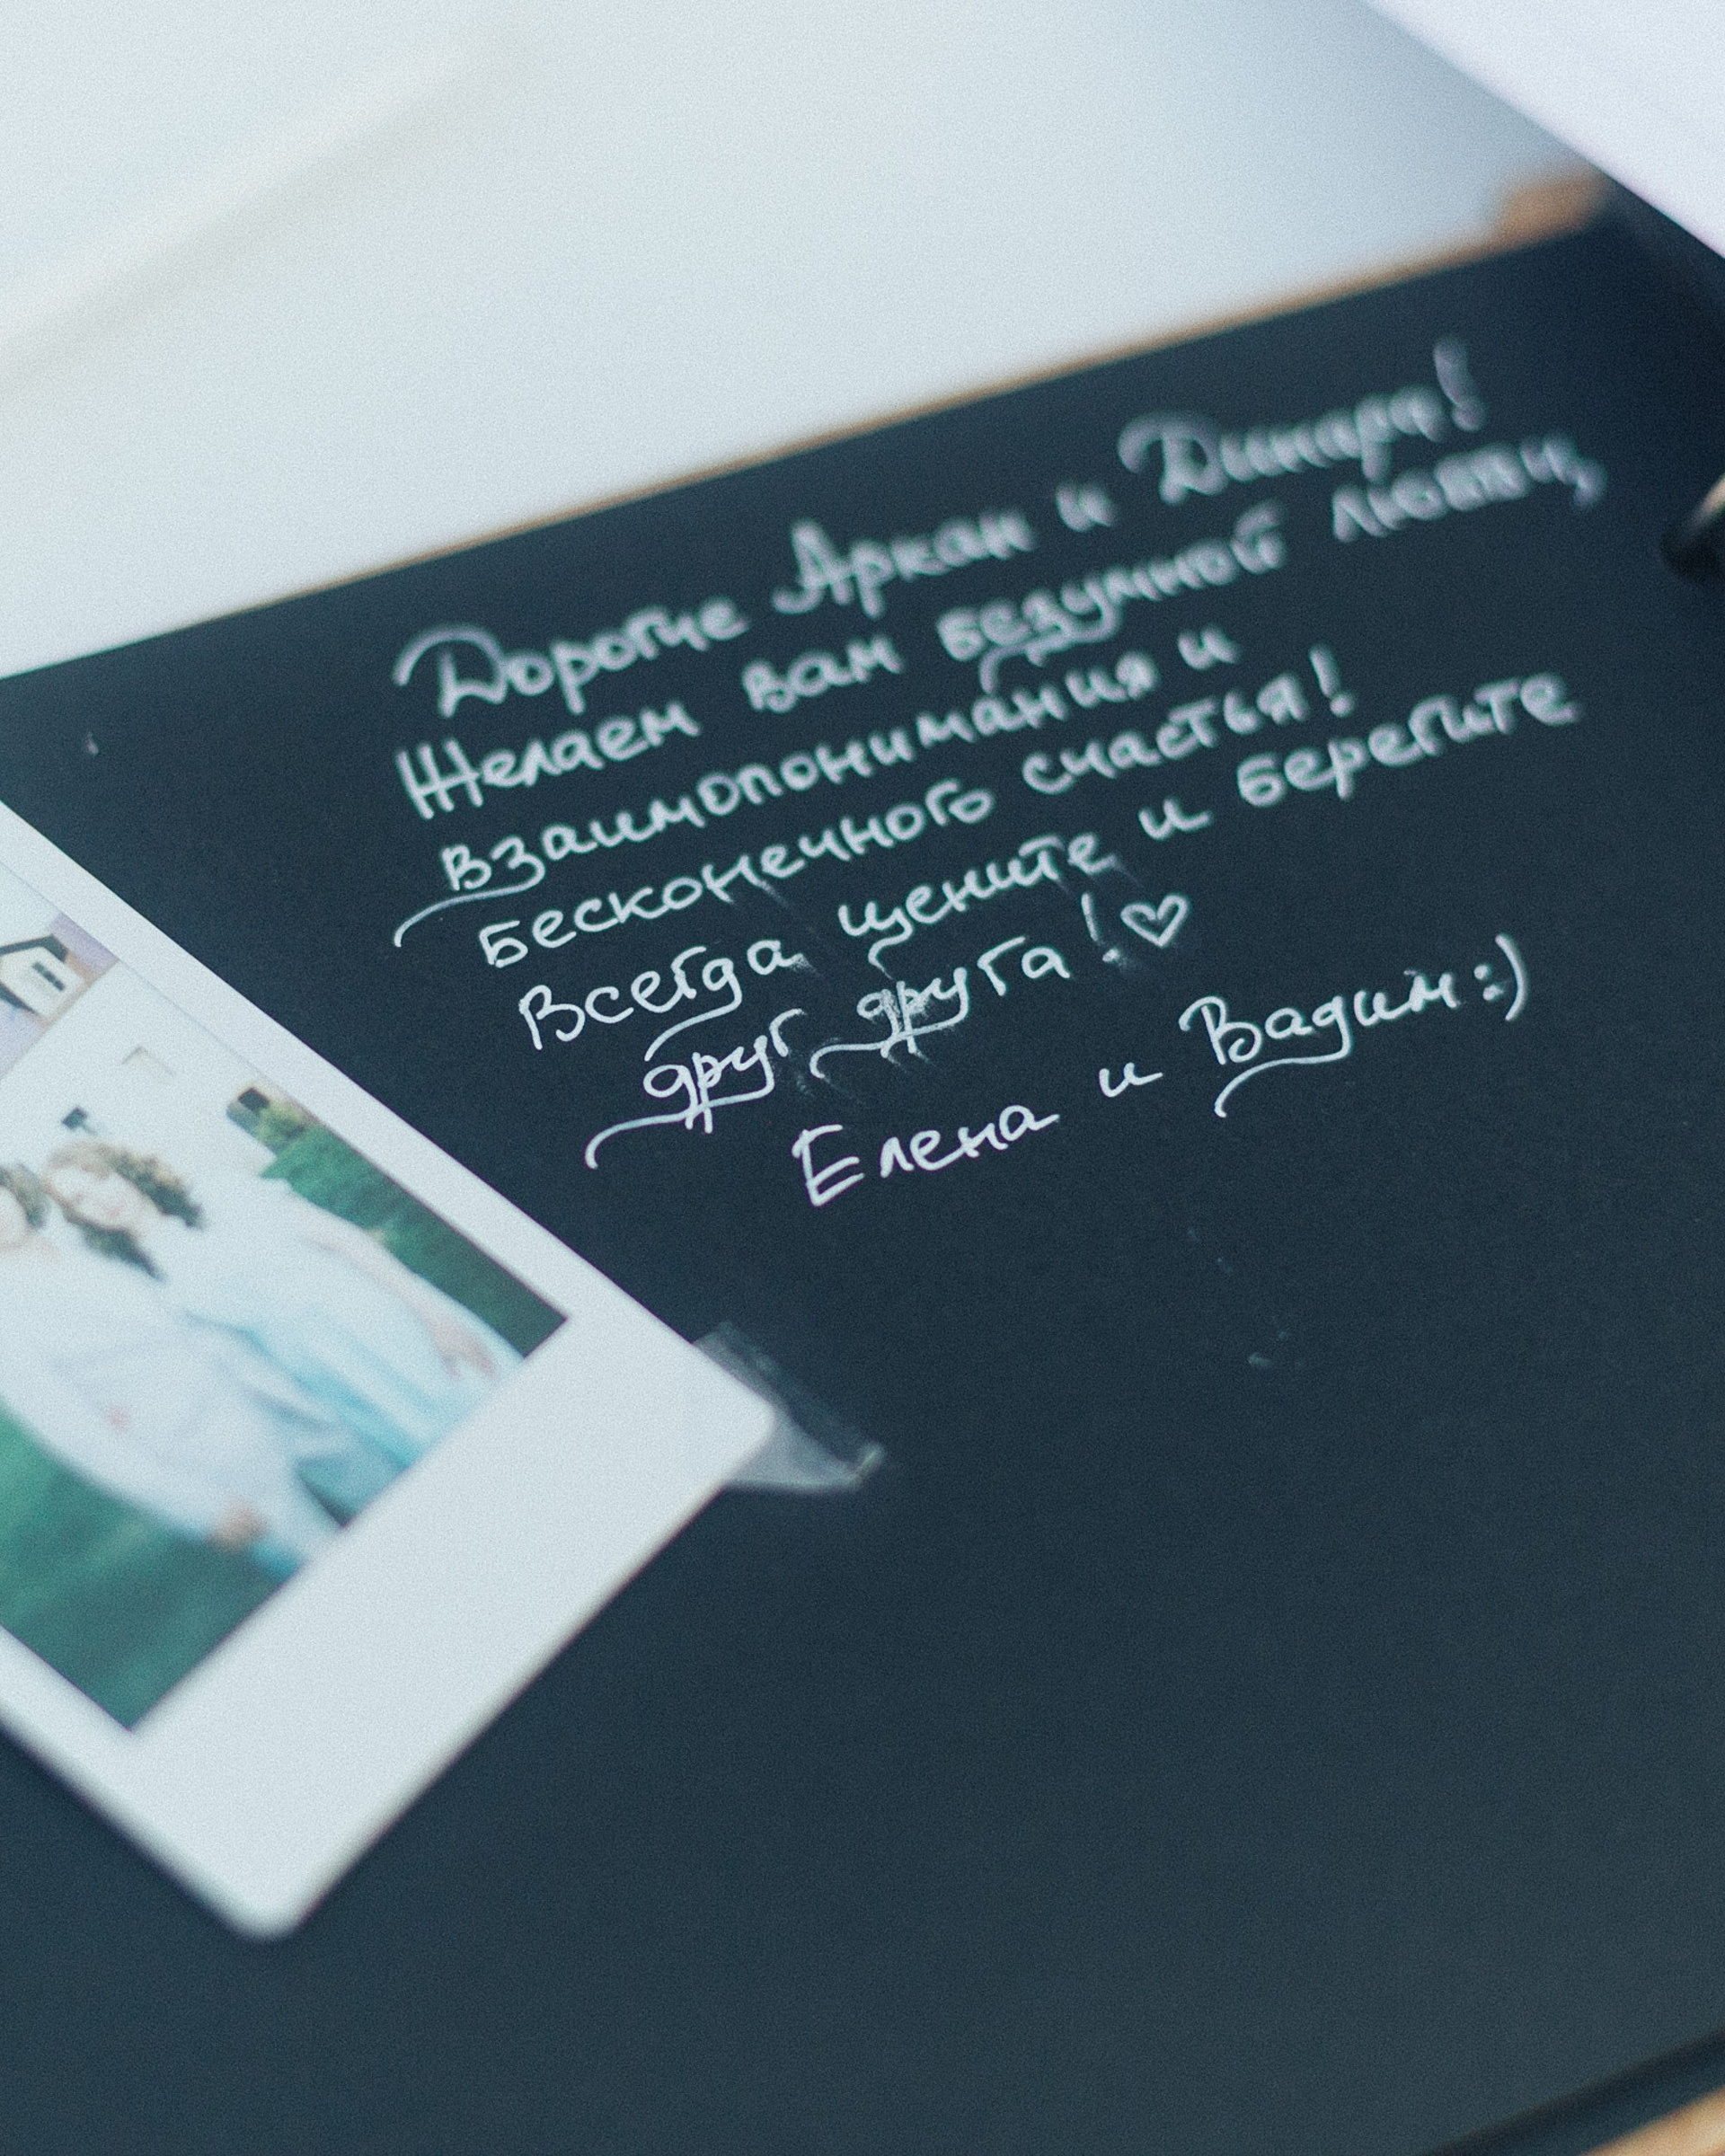 Дорогие Аркан и Динара!
Желаем вам безумной любви,
взаимопонимания и
бесконечного счастья!
Всегда цените и берегите
друг друга!♡
Елена и Вадим:)